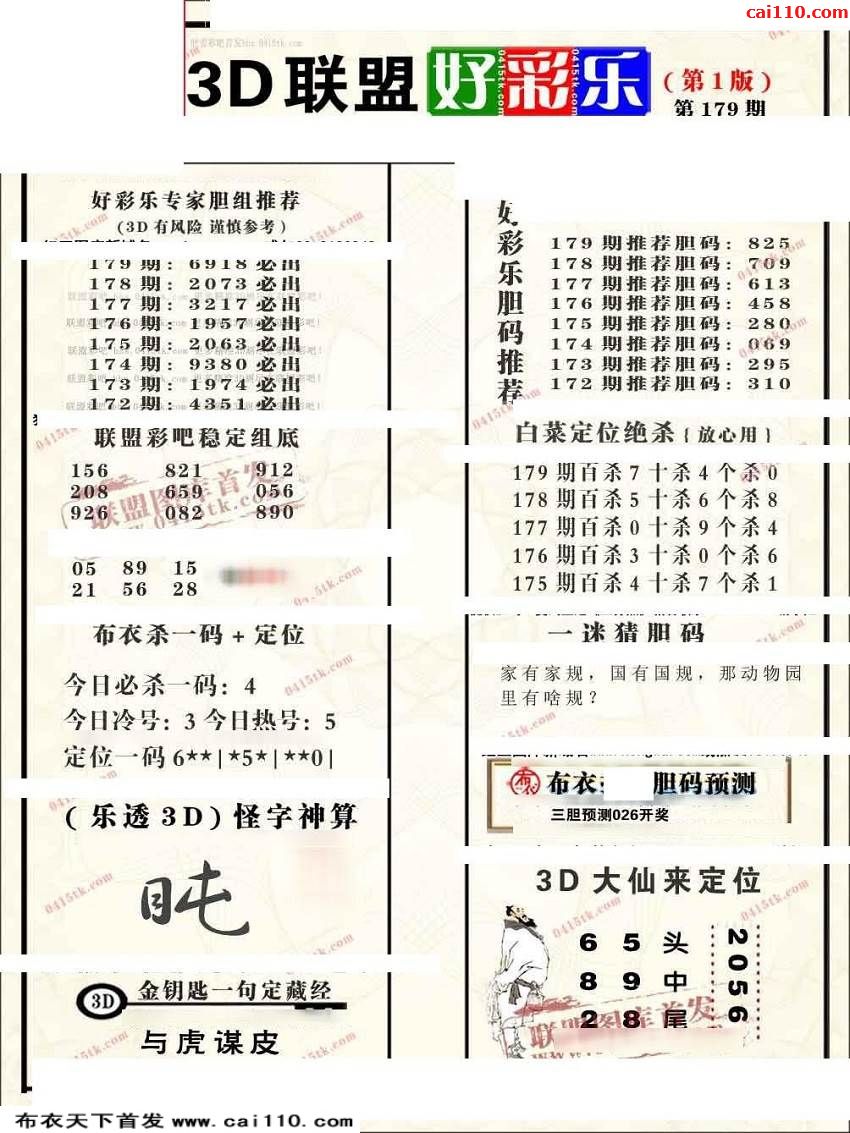 cai110.com
3D联盟好彩乐(第1版)
第179期
好彩乐专家胆组推荐
(3D有风险 谨慎参考)
179期: 6918必出
178期: 2073必出
177期: 3217必出
176期: 1957必出
175期: 2063必出
174期: 9380必出
173期: 1974必出
172期: 4351必出
联盟彩吧稳定组底
156 821 912
208 659 056
926 082 890
05 89 15
21 56 28
布衣杀一码+定位
今日必杀一码: 4
今日冷号: 3 今日热号: 5
定位一码6**|*5*|**0|
(乐透3D)怪字神算
3D 金钥匙一句定藏经
与虎谋皮
彩乐胆码推荐
179期推荐胆码: 825
178期推荐胆码: 709
177期推荐胆码: 613
176期推荐胆码: 458
175期推荐胆码: 280
174期推荐胆码: 069
173期推荐胆码: 295
172期推荐胆码: 310
白菜定位绝杀{放心用}
179期百杀7十杀4个杀0
178期百杀5十杀6个杀8
177期百杀0十杀9个杀4
176期百杀3十杀0个杀6
175期百杀4十杀7个杀1
一迷猜胆码
家有家规，国有国规，那动物园
里有啥规？
布衣 胆码预测
三胆预测026开奖
3D大仙来定位
6 5 头
8 9 中
2 8 尾
2056
联盟图库首发
0415tk.com
布衣天下首发 www.cai110.com